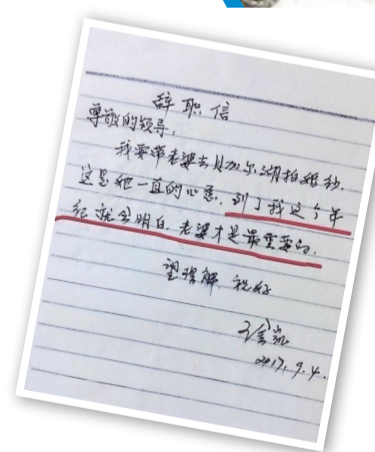 辞职信
尊敬的领导:
我要带老婆去贝加尔湖拍婚纱.
这是她一直的心愿. 到了我这个年
纪就会明白. 老婆才是最重要的.
望理解 祝好
2017.9.4.